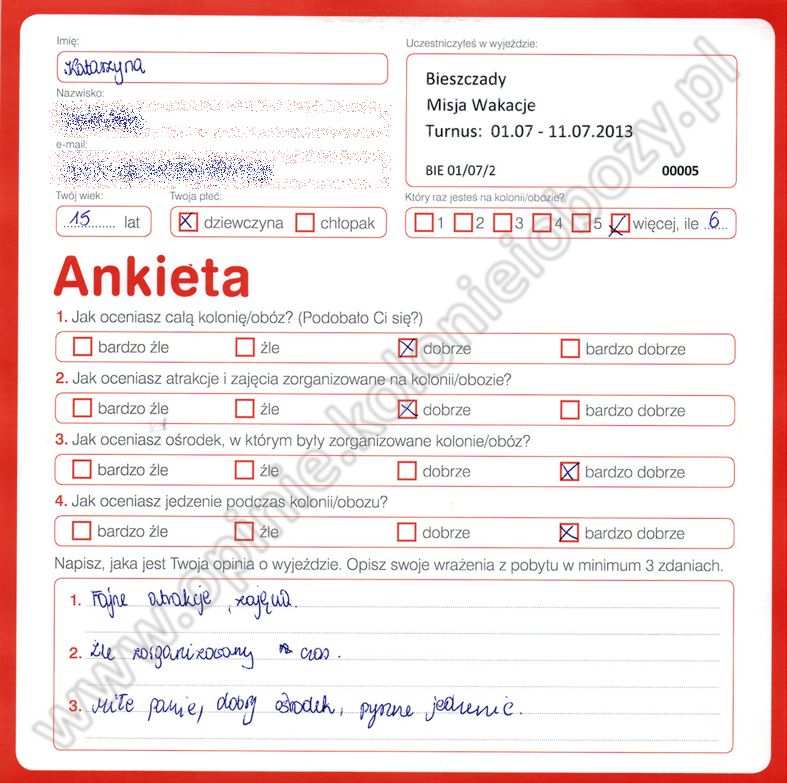 Imię:
Katarzyna
Nazwisko:
e-mail:
Twój wiek:
15 lat
Twoja płeć:
dziewczyna chłopak
Uczestniczyłeś w wyjeździe:
Bieszczady
Misja Wakacje
Turnus: 01.07 - 11.07.2013
BIE 01/07/2 00005
Który raz jesteś na kolonii/obozie?
1 2 3 4 5 więcej, ile 6
Ankieta
1. Jak oceniasz całą kolonię/obóz? (Podobało Ci się?)
bardzo źle źle dobrze bardzo dobrze
2. Jak oceniasz atrakcje i zajęcia zorganizowane na kolonii/obozie?
bardzo źle źle dobrze bardzo dobrze
3. Jak oceniasz ośrodek, w którym były zorganizowane kolonie/obóz?
bardzo źle źle dobrze bardzo dobrze
4. Jak oceniasz jedzenie podczas kolonii/obozu?
bardzo źle źle dobrze bardzo dobrze
Napisz, jaka jest Twoja opinia o wyjeździe. Opisz swoje wrażenia z pobytu w minimum 3 zdaniach.
1. Fajne atrakcje, zajęcia.
2. Źle zorganizowany czas.
3. Miłe panie, dobry ośrodek, pyszne jedzenie.
www.opinie.kolonieiobozy.pl